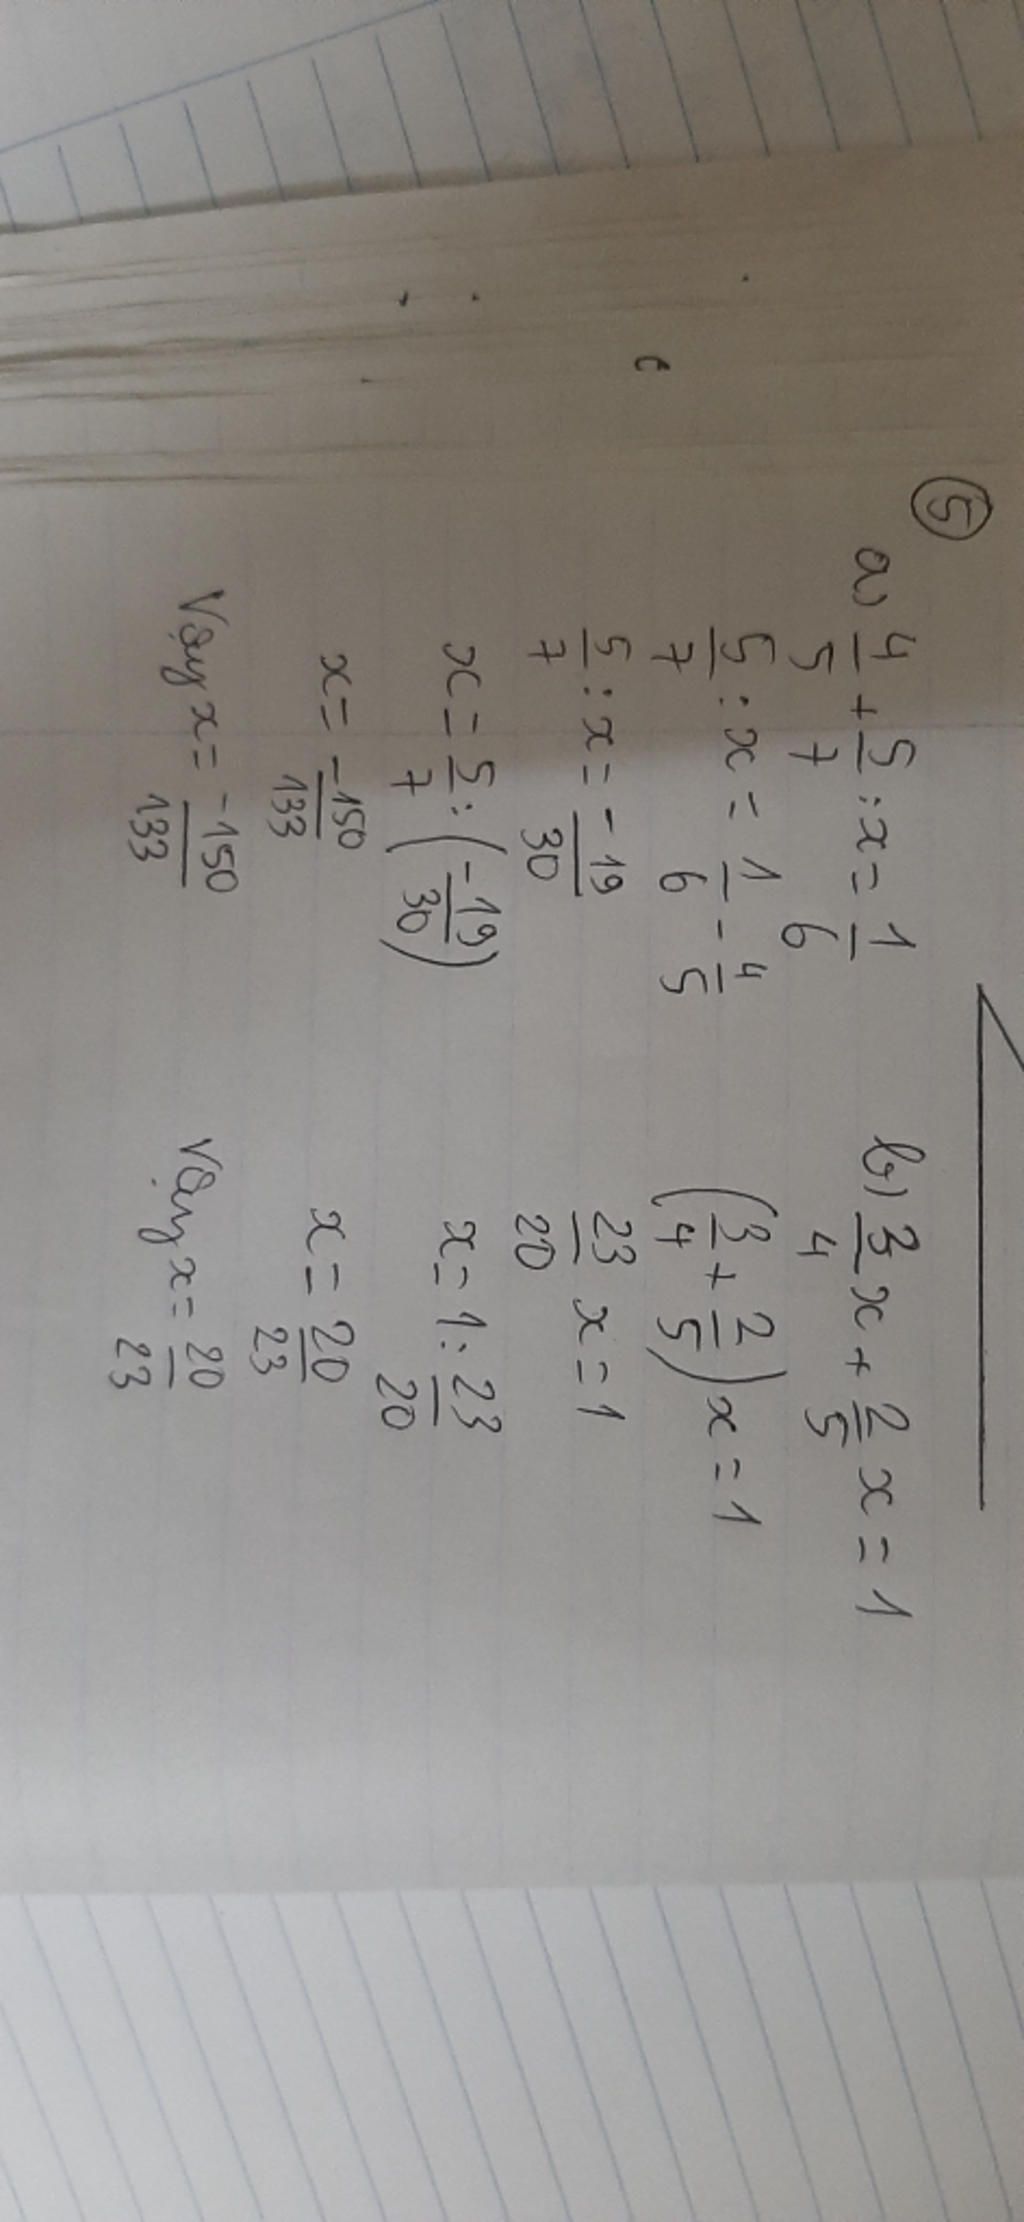 ⑤
a) 4/5 + 5/7 : x = 1/6
5/7 : x = 1/6 - 4/5
5/7 : x = -19/30
x = 5/7 : (-19/30)
x = -150/133
Vậy x = -150/133
b) 3/4 x + 2/5 x = 1
(3/4 + 2/5) x = 1
23/20 x = 1
x = 1 : 23/20
x = 20/23
Vậy x = 20/23